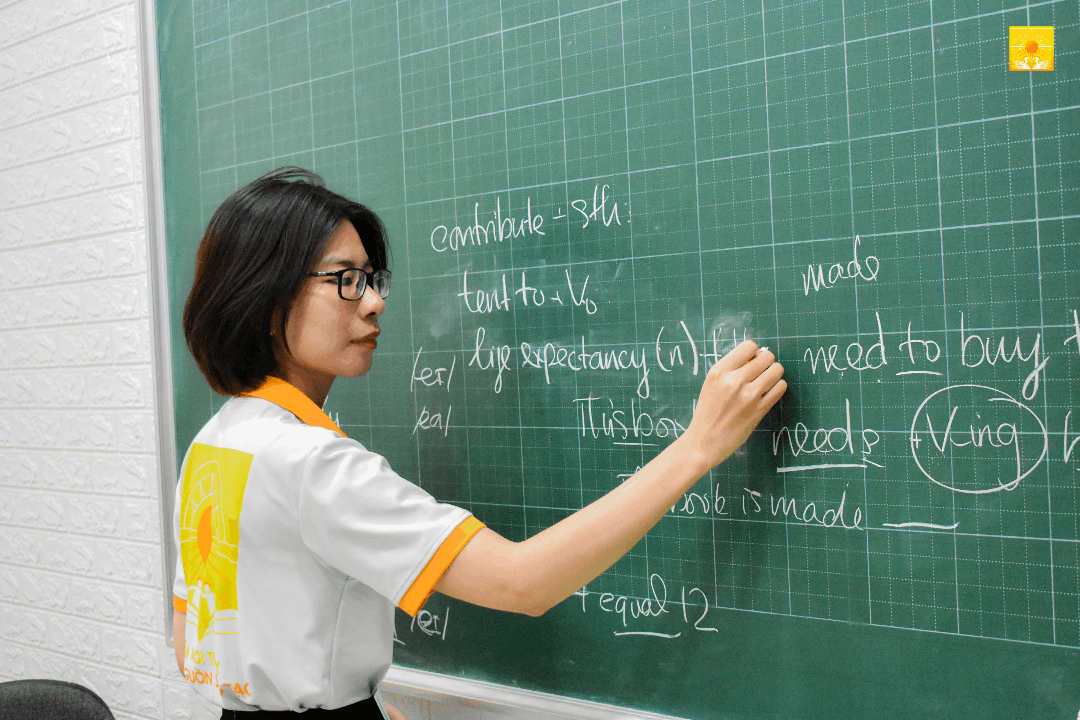 contribute - sth:
tent to + Vo
made
/eɪ/ life expectancy (n)
need to buy
/ea/ This book needs + Ving
book is made
equal 12
/eɪ/